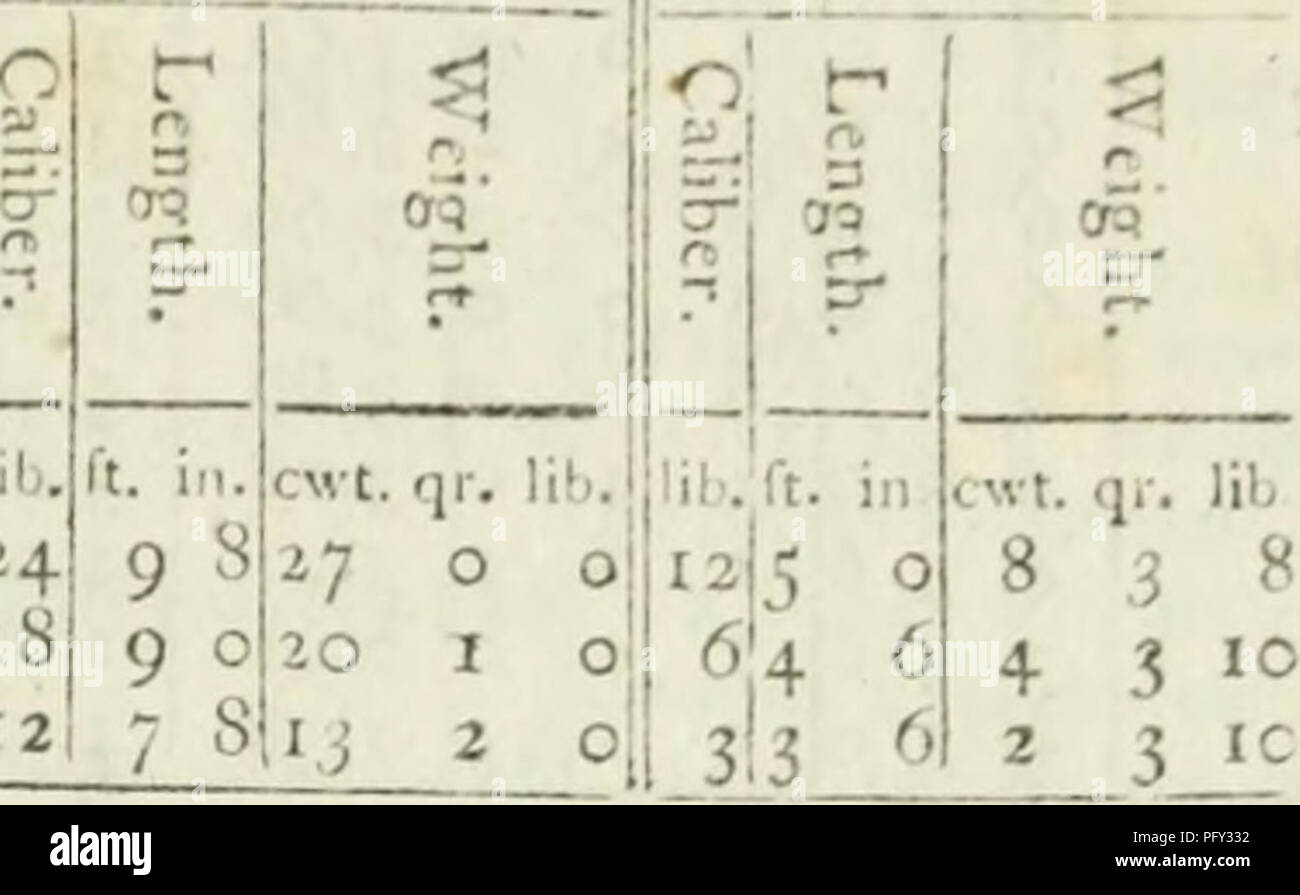 Caliber. Length. Weight. Caliber. Length. Weight.
ib. ft. in. cwt. qr. lib. lib. ft. in cwt. qr. lib
24 9 8 27 0 0 12 5 0 8 3 8
8 9 0 20 1 0 6 4 6 4 3 10
12 7 8 13 2 0 3 3 6 2 3 10
alamy
alamy
Image ID: PFY332
www.alamy.com